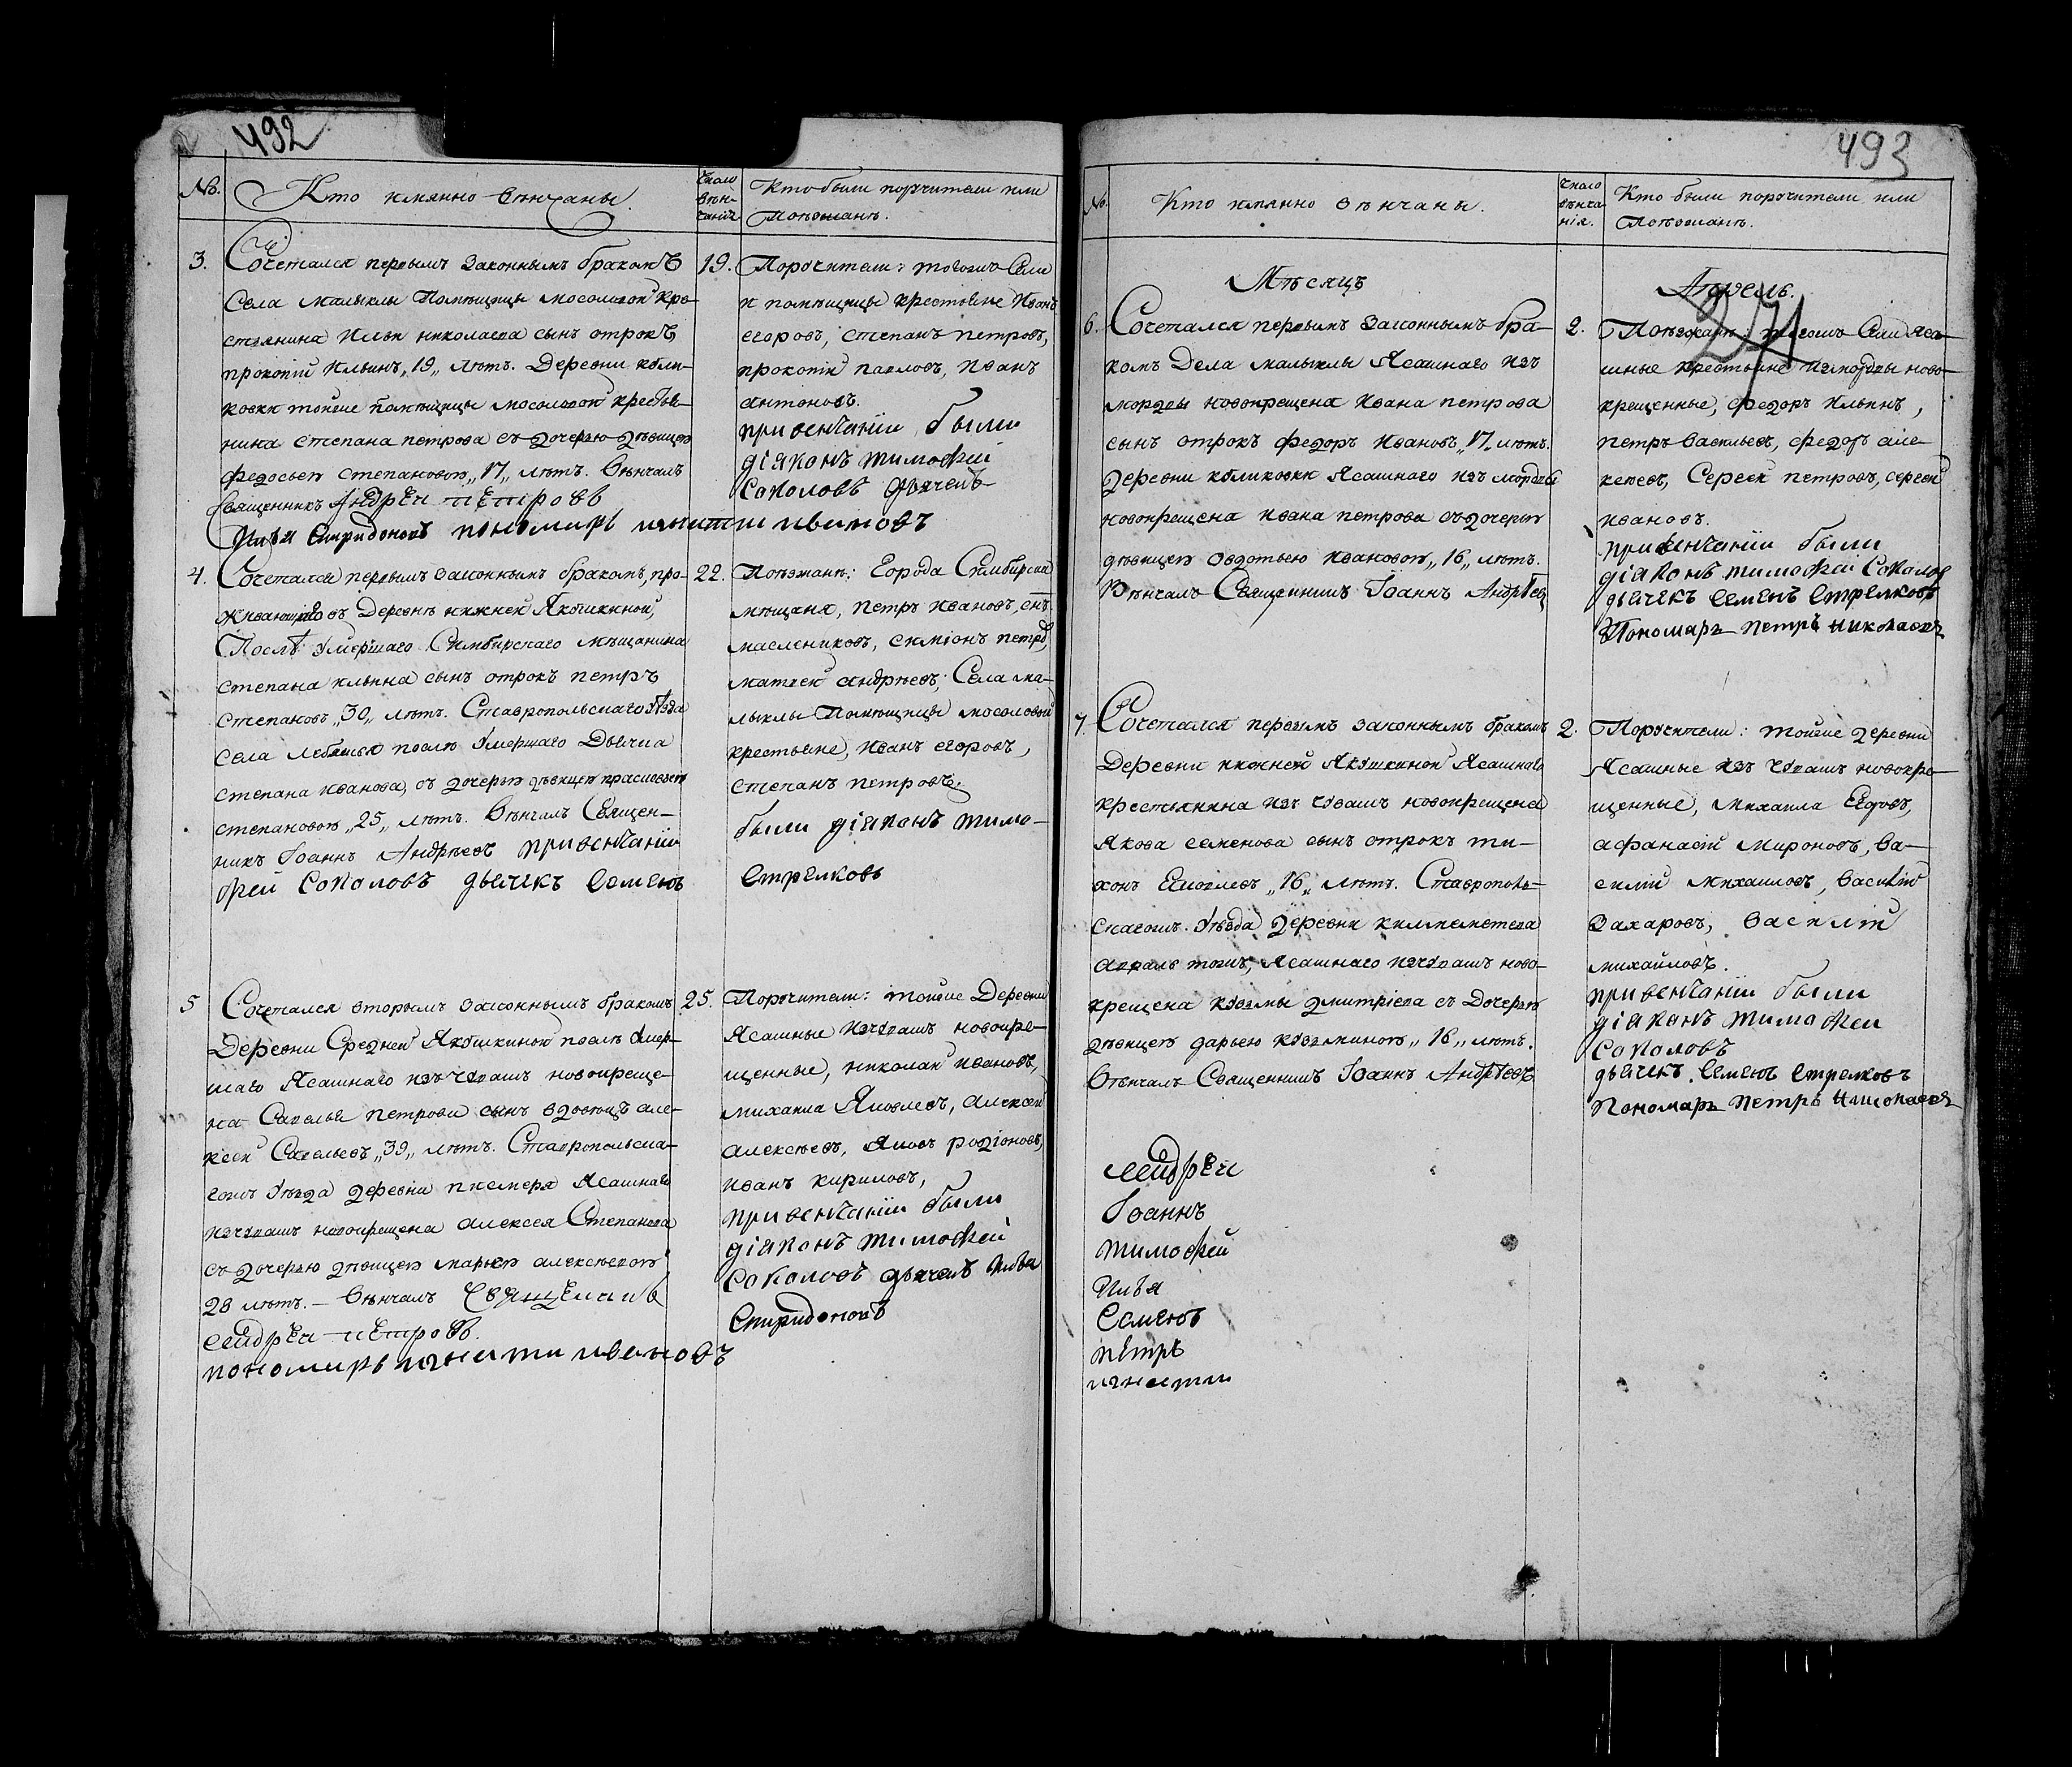 492
№.
Кто имянно вѣнчаны.
Число вѣн-чанія
Кто были порѹчители или
Поѣзжанѣ.
3.
Сочетался первымъ законнымъ бракомъ
Села малыклы Помѣщицы мосоловой кре-
стьянина Ильи николаева сынъ отрокъ
прокопій Ильинъ „19„ лѣтъ. Деревни кѹли-
ковки тойже помѣщицы мосоловой крестья-
нина степана петрова съ дочерью дѣвицею
федосьею степановою „17„ лѣтъ. Вѣнчалъ
Священникъ Андреи петровъ
19.
Порѹчители: тогожъ Села
и помѣщицы крестьяне Иванъ
егоровъ, степанъ петровъ,
прокопій павловъ, Иванъ
антоновъ.
при венчаніи были
діяконъ тимофей
соколовъ дьячекъ
Илья Спиридоновъ пономарь игнати ивановъ
4.
Сочетался первымъ законнымъ бракомъ, про-
живающаго въ Деревнѣ нижней Якѹшкиной,
Послѣ ѹмершаго Симбирскаго мѣщанина
степана ильина сынъ отрокъ петръ
степановъ „30„ лѣтъ. Ставропольскаго ѹѣзда
села лебяжья послѣ ѹмершаго Дьячка
степана иванова, съ дочерью дѣвицею прасковьею
степановою „25„ лѣтъ. Вѣнчалъ Священ-
никъ Іоаннъ Андрѣевъ при венчаніи
фей соколовъ дьячекъ семенъ
22.
Поѣзжанѣ: Города Симбирска
мѣщаня, петръ ивановъ, снъ
маслениковъ, симіонъ петровъ,
матвей андрѣевъ; Села ма-
лыклы Помѣщицы мосоловой
крестьяне, иванъ егоровъ,
степанъ петровъ.
были діяконъ тимо-
стрелковъ
5
Сочетался вторымъ законнымъ бракомъ
Деревни Средней Якѹшкиной послѣ ѹмер-
шаго Ясашнаго изъ чѹвашъ новокреще-
на Савелья петрова сынъ вдовецъ але-
ксей Савельевъ „39„ лѣтъ. Ставропольска-
гожъ ѹѣзда деревни Ясашнаго
изъ чѹвашъ новокрещена алексея Степанова
съ дочерью дѣвицею марьею алексѣевою
28 лѣтъ. — Вѣнчалъ Священникъ
андреи петровъ.
пономарь игнати ивановъ
25.
Порѹчители: тойже Деревни
Ясашные изъ чѹвашъ новокре-
щенные, николай ивановъ,
михаила Яковлевъ, алексей
алексѣевъ, Яковъ родіоновъ,
иванъ кириловъ,
при венчаніи были
діяконъ тимофей
соколовъ дьячекъ Илья
Спиридоновъ
493
№.
Кто имянно вѣнчаны.
Число вѣнча нія.
Кто были порѹчители или
Поѣзжанѣ.
Мѣсяцъ
Апрель.
271
6.
Сочетался первымъ законнымъ бра-
комъ Села малыклы Ясашнаго изъ
мордвы новокрещена ивана петрова
сынъ отрокъ федоръ ивановъ „17„ лѣтъ.
деревни кѹликовки Ясашнаго изъ мордвы
новокрещена ивана петрова съ дочерью
дѣвицею овдотьею ивановою „16„ лѣтъ.
Вѣнчалъ Священникъ Іоаннъ Андрѣевъ
2.
Поѣзжанѣ: тогожъ Села яса-
шные крестьяне изъ мордвы ново-
крещенные, федоръ ильинъ,
петръ васильевъ, федоръ але-
ксѣевъ, Сергей петровъ, сергей
ивановъ.
при венчаніи были
діяконъ тимофей Соколов
дьячекъ семенъ стрелковъ
Пономарь петръ николаевъ
7.
Сочетался первымъ законнымъ бракомъ
Деревни нижней Якѹшкиной Ясашнаго
крестьянина изъ чѹвашъ новокрещена
Якова семенова сынъ отрокъ ти-
хонъ Яковлевъ „16„ лѣтъ. Ставрополь-
скагожъ ѹѣзда деревни
тожъ, Ясашнаго изъ чѹвашъ ново-
крещена кѹзмы дмитріева съ дочерью
дѣвицею дарьею кѹзминою „16„ лѣтъ.
Вѣнчалъ Священникъ Іоаннъ Андрѣевъ
2.
Порѹчители: тойже деревни
Ясашные изъ чѹвашъ новокре-
щенные, михаила
афанасій мироновъ, ва-
силій михаиловъ, василій
захаровъ, василій
михайловъ.
при венчаніи были
діяконъ тимофей
соколовъ
дьячекъ семенъ стрелковъ
Пономарь петръ николаевъ
андреи
Іоаннъ
тимофей
Илья
семенъ
петръ
игнати